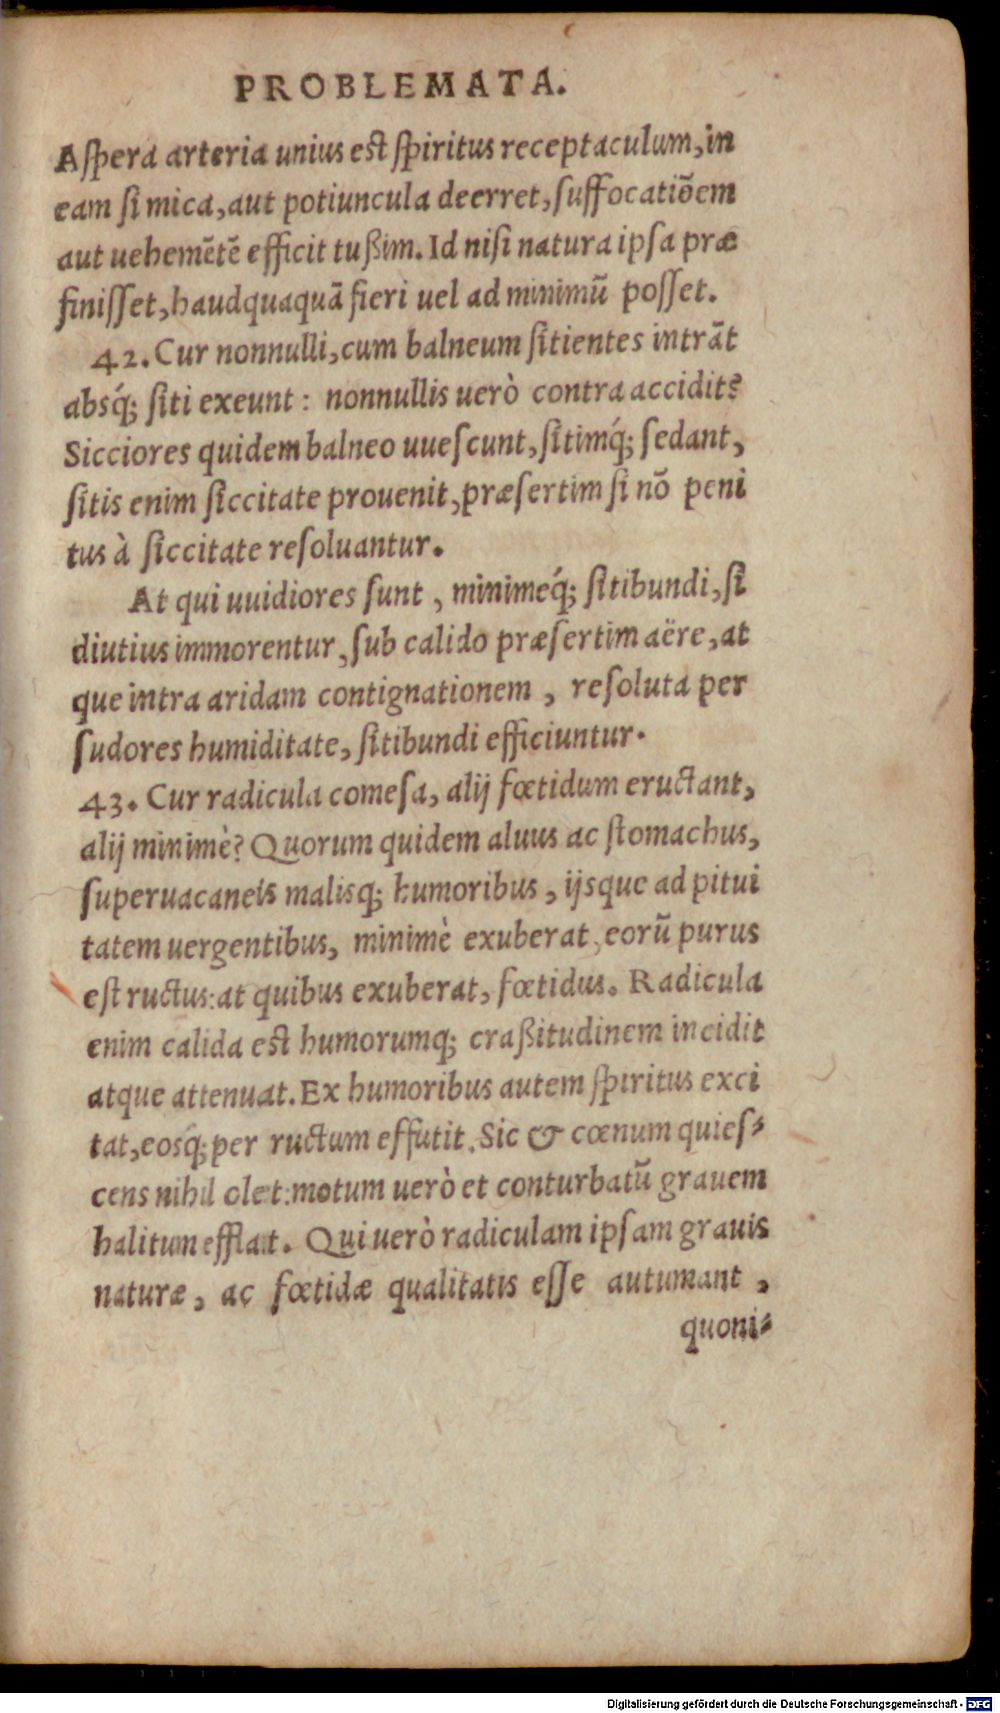 PROBLEMATA.
Aſpera arteria unius est ſpiritus receptaculum, in
eam ſi mica, aut potiuncula deerret, ſuffocatiōem
aut uehemētē efficit tußim. Id niſi natura ipſa præ
finiſſet, haudquaquā fieri uel ad minimū poſſet.
42. Cur nonnulli, cum balneum ſitientes intrāt
absq́; ſiti exeunt: nonnullis uerò contra accidit?
Sicciores quidem balneo uueſcunt, ſitimq́; ſedant,
ſitis enim ſiccitate prouenit, præſertim ſi nō peni
tus à ſiccitate reſoluantur.
At qui uuidiores ſunt, minimeq́; ſitibundi, ſi
diutius immorentur, ſub calido præſertim aëre, at
que intra aridam contignationem, reſoluta per
ſudores humiditate, ſitibundi efficiuntur.
43. Cur radicula comeſa, alij fœtidum eructant,
alij minimè? Quorum quidem aluus ac ſtomachus,
ſuperuacaneis malisq; humoribus, ijsque ad pitui
tatem uergentibus, minimè exuberat, eorū purus
eſt ructus: at quibus exuberat, fœtidus. Radicula
enim calida est humorumq; craßitudinem incidit
atque attenuat. Ex humoribus autem ſpiritus exci
tat, eosq́; per ructum effutit. Sic & cœnum quieſ-
cens nihil olet: motum uerò et conturbatū grauem
halitum efflat. Qui uerò radiculam ipſam grauis
naturæ, ac fœtidæ qualitatis eſſe autumant,
quoni-
Digitalisierung gefördert durch die Deutsche Forschungsgemeinschaft - DFG